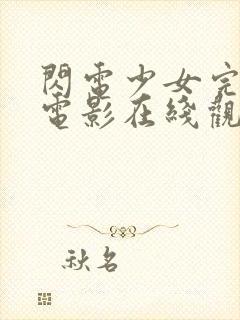 閃電少女完
電影在綫觀
秋名